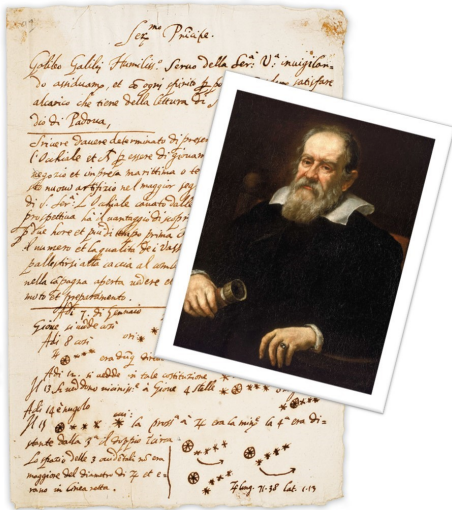 Ser.mo Principe.
Galileo Galilej Humiliss.o Servo della Ser.a V.a invigilan-
do assiduam.te, et co ogni spirito p
alcarico che tiene della lettura di
dio di Padova,
Scrivere d'avere determinato di presen
l'Occhiale et p essere di Giovam
negozio et impresa marittima o te
sto nuovo artifizio nel maggior seg
di V. Ser.a L'Occhiale cavato dalle
prospettiva il vantaggio di scopri
due hore et più di tempo prima
il numero et la qualità dei Vasse
pallestirsi alla caccia al
nella capagna aperta vedere et
moto et preparamento.
Adì 7. di Gennaio
Giove si vede così
Adì 8 così
era dunq diret
Adì 12. si vedde in tale costituzione
Il 13 si veddono vicinis.e à Giove 4 stelle
Adì 14 è nugolo
Il 15 la pross.a à ♃ era la min.e la 4.a era di-
stante dalla 3.a il doppio
Lo spazio delle 3 occidentali no era
maggiore del diametro di ♃ et e-
rano in linea retta.
♃ long. 71.38 lat. 1.13